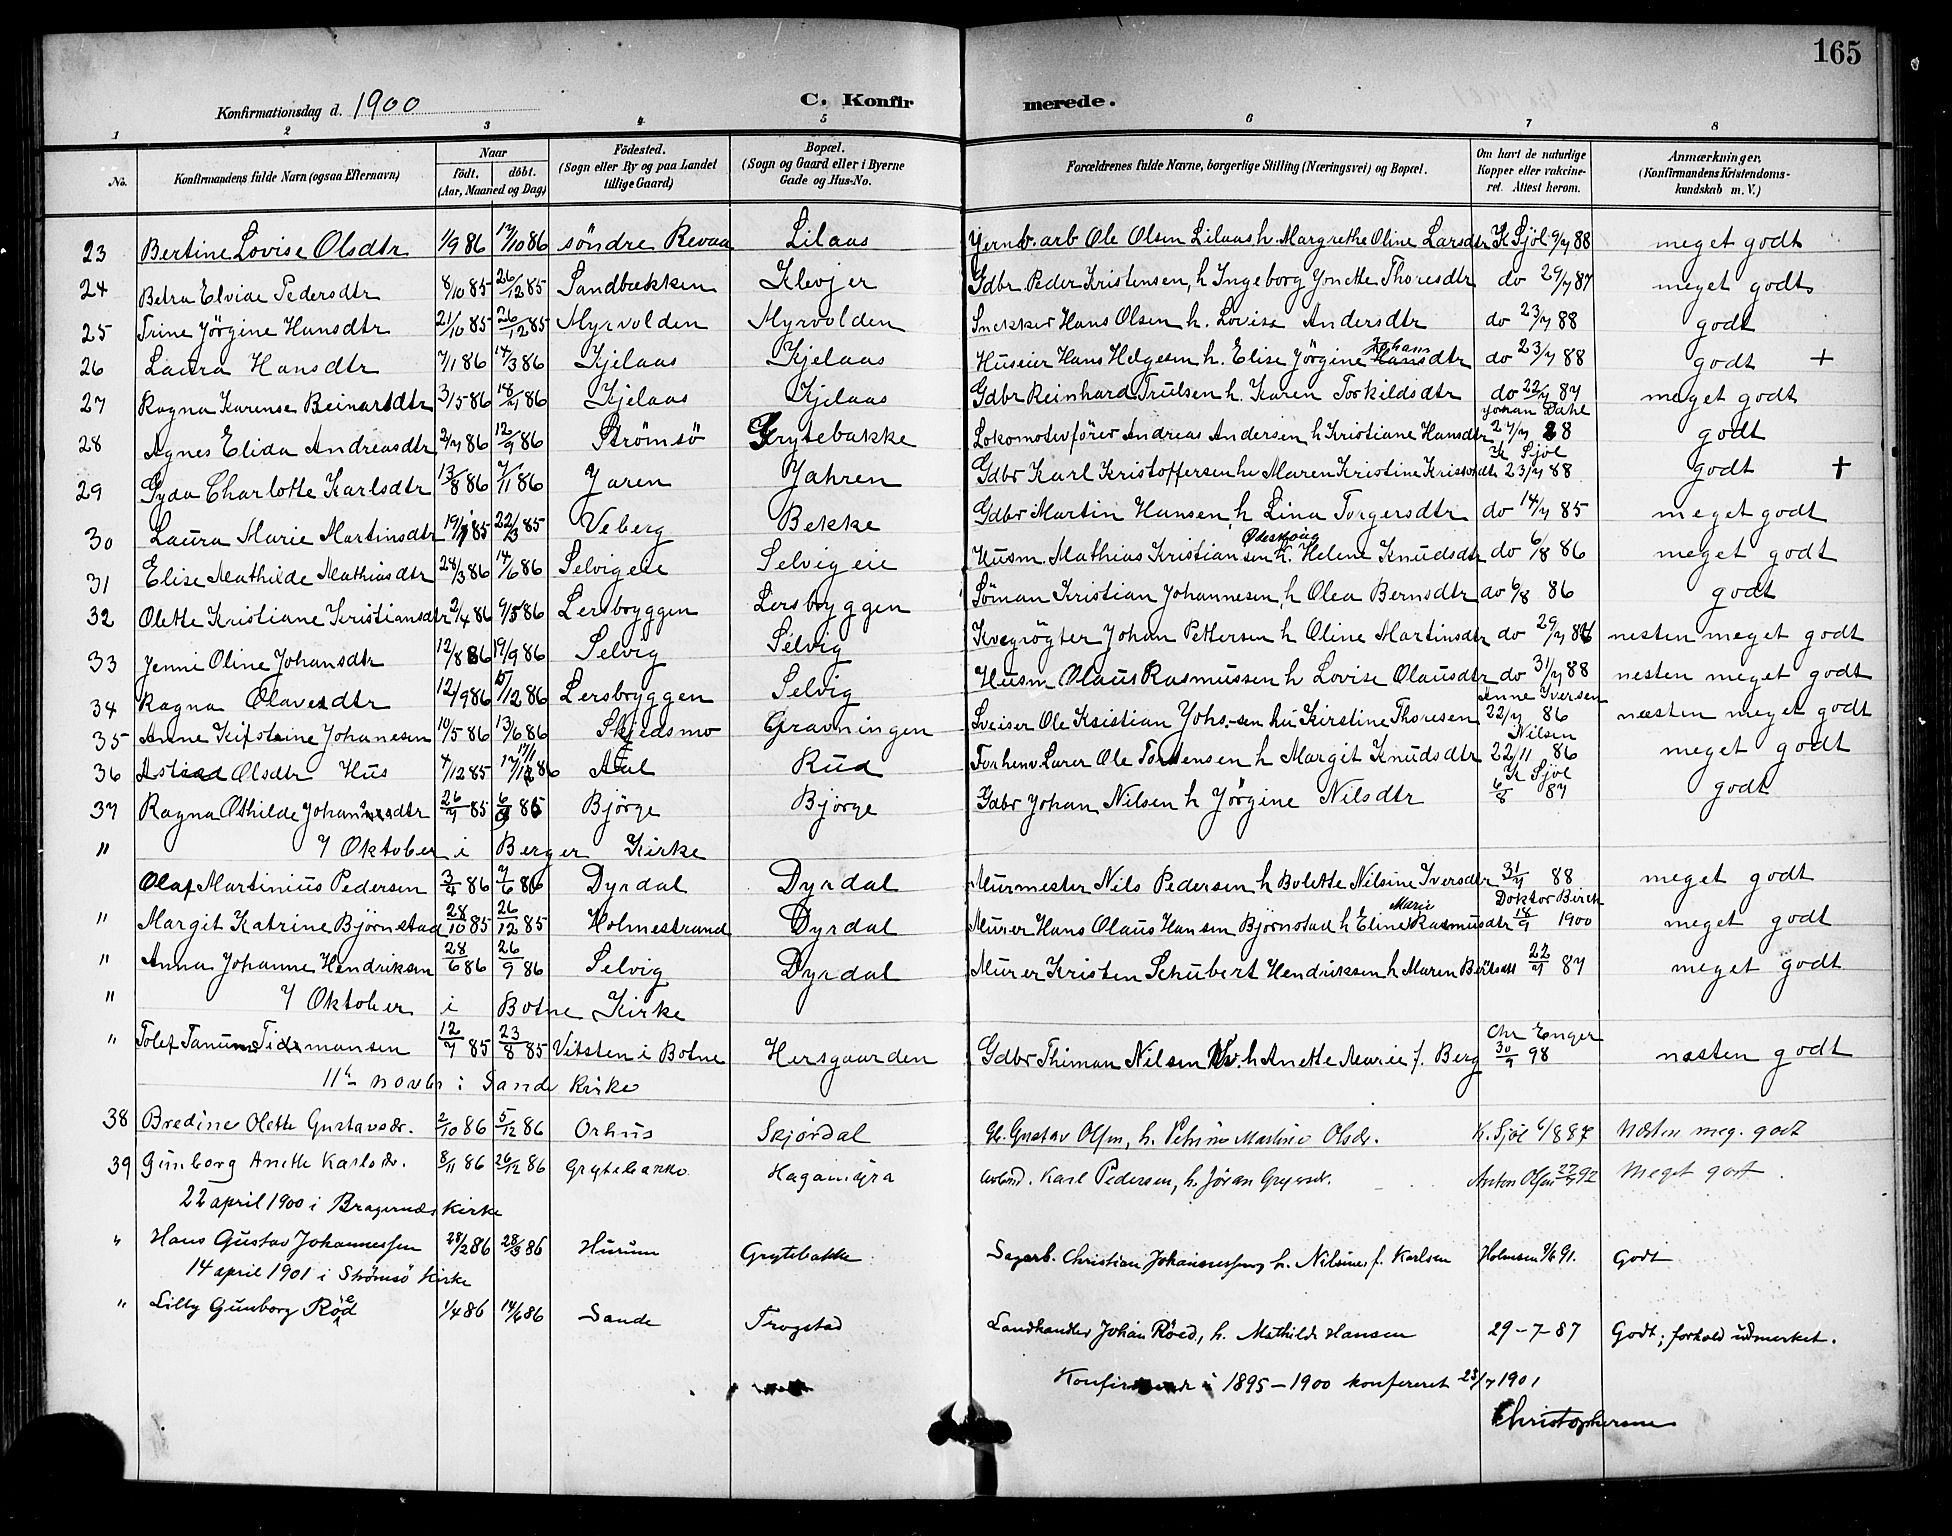 165
Konfirmationsdag d. 1900
C. Konfirmerede.
1 2 3 4 5 6 7 8
No. Konfirmandens fulde Navn (ogsaa Efternavn) Naar født. døbt. (Aar, Maaned og Dag) Födested. (Sogn eller By og paa Landet tillige Gaard) Bopæl. (Sogn og Gaard eller i Byerne Gade og Hus-No. Forældrenes fulde Navne, borgerlige Stilling (Næringsvei) og Bopæl. Om havt de naturlige Kopper eller vakcineret. Attest herom. Anmærkninger. (Konfirmandens Kristendomskundskab m. V.)
23 Bertine Lovise Olsdtr 1/9 86 17/10 86 söndre Revaa Lilaas Jernb. arb Ole Olsen Lilaas h. Margrethe Oline Larsdtr K Sjöl 9/7 88 meget godt
24 Betra Elvide Pedersdtr 8/10 85 26/12 85 Sandbækken Klevjer Gdbr Peder Kristensen, h Ingeborg Jonette Thoresdtr do 29/7 87 meget godt
25 Trine Jörgine Hansdtr 21/10 85 26/12 85 Myrvolden Myrvolden Snekker Hans Olsen h. Lovise Andersdtr do 23/7 88 godt
26 Laura Hansdtr 7/1 86 14/3 86 Kjelaas Kjelaas Huseier Hans Helgesen h. Elise Jörgine Johansdtr do 23/7 88 godt +
27 Ragna Karense Reinartdtr 3/5 86 18/7 86 Kjelaas Kjelaas Gdbr Reinhard Trulsen h. Karen Torkildsdtr do 22/7 87 meget godt
28 Agnes Elida Andreasdtr 2/7 86 12/9 86 Strömsö Grytebakke Lokomotivförer Andreas Andersen h Kristiane Hansdtr Johan Dahl 27/7 88 godt
29 Gyda Charlotte Karlsdtr 13/8 86 7/11 86 Jaren Jahren Gdbr Karl Kristoffersen h. Maren Kristine K Sjöl 23/7 88 godt +
30 Laura Marie Martinsdtr 19/1 85 22/3 85 Veberg Bekke Gdbr Martin Hansen, h Lina Torgersdtr do 14/7 85 meget godt
31 Elise Mathilde Mathiasdtr 28/3 86 14/6 86 Selvigeie Selvigeie Husm. Mathias Kristiansen h. Helene Knudsdtr do 6/8 86 meget godt
32 Olette Kristiane Kristiansdtr 2/4 86 9/5 86 Lersbryggen Lersbryggen Söman Kristian Johannesen, h Olea Bernsdtr do 6/8 86 godt
33 Jenni Oline Johansdtr 12/8 86 19/9 86 Selvig Selvig Kvegrögter Johan Pettersen h Oline Martinsdtr do 29/7 nesten meget godt
34 Ragna Olavesdtr 12/9 86 5/12 86 Lersbryggen Selvig Husm Olaus Rasmussen h Lovise Olausdtr do 31/7 88 nesten meget godt
35 Anne Johanesen 10/5 86 13/6 86 Skjedsmo Gravningen Sveiser Ole Kristian Johs.-sen hu Kirstine Thoresen Anne Iversen 22/7 86 næsten meget godt
36 Olsdtr Hus 4/12 85 17/1 86 Aal Rud Forhenv. Lærer Ole Torstensen h Margit Knudsdtr Nilsen 22/11 86 meget godt
37 Ragna Othilde Johansdtr 26/7 85 6/9 85 Björge Björge Gdbr Johan Nilsen h Jörgine Nilsdtr K Sjöl 6/8 87 godt
" 7 Oktober i Berger Kirke
Olaf Martinius Pedersen 3/4 86 7/6 86 Dyrdal Dyrdal Murmester Nils Pedersen h Bolette Nilsine Iversdtr 31/7 88 meget godt
" Margit Katrine Björnstad 28/10 85 26/12 85 Holmestrand Dyrdal Murer Hans Olaus Hansen Björnstad h Eline Marie Rasmusdtr Doktor Birch 18/9 1900 meget godt
" Anna Johanne Hendriksen 28/6 86 26/9 86 Selvig Dyrdal Murer Kristen Schubert Hendriksen h Maren 22/7 87 meget godt
" 7 Oktober i Botne Kirke
" Tolef Tanum 12/7 85 23/8 85 Vitsten i Botne Hersgaarden Gdbr Thiman Nilsen h Anette Marie f. Berg Chr Enger 30/9 98 næsten godt
11te novbr i Sande Kirke
38 Bredine Olette Gustavsdr. 2/10 86 5/12 86 Orhus Skjørdal Gb. Gustav Olsen, h. Petrine Martine Olsdr. K. Sjöl 6/8 87 Næsten meg. godt
39 Gunborg Anette Karlsdr. 8/11 86 26/12 86 Grytebakke Hagamyra Karl Pedersen, h. Jöran Anton Olsen 22/7 92 Meget godt
22 april 1900 i Bragernæs Kirke
" Hans Gustav Johannessen 28/2 86 28/3 86 Hurum Grytebakke Sagarb. Christian Johannessen h. Nilsine f. Karlsen Holmsen 9/6 91. Godt
14 april 1901 i Strømsø Kirke
" Lilly Gunborg Röed 1/4 86 14/6 86 Sande Trogstad Landhandler Johan Röed, h. Mathilde Hansen 29-7-87 Godt; forhold udmerket.
i 1895-1900 konfereret 23/7 1901
Christophersen